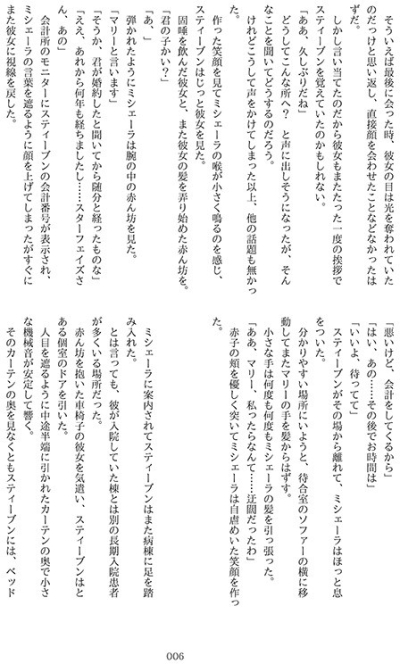 そういえば最後に会った時、彼女の目は光を奪われていた
のだっけと思い返し、直接顔を会わせたことなどなかったは
ずだ。
しかし言い当てたのだから彼女もまたたった一度の挨拶で
スティーブンを覚えていたのかもしれない。
「ああ、久しぶりだね」
どうしてこんな所へ？　と声に出しそうになったが、そん
なことを聞いてどうするのだろう。
けれどこうして声をかけてしまった以上、他の話題も無かっ
た。
作った笑顔を見てミシェーラの喉が小さく鳴るのを感じ、
スティーブンはじっと彼女を見た。
固唾を飲んだ彼女と、また彼女の髪を弄り始めた赤ん坊を。
「君の子かい？」
「あ、」
弾かれたようにミシェーラは腕の中の赤ん坊を見た。
「マリーと言います」
「そうか、君が婚約したと聞いてから随分と経ったものな」
「ええ、あれから何年も経ちましたし……スターフェイズさ
ん、あの」
会計所のモニターにスティーブンの会計番号が表示され、
ミシェーラの言葉を遮るように顔を上げてしまったがすぐに
また彼女に視線を戻した。
「悪いけど、会計をしてくるから」
「はい、あの……その後でお時間は」
「いいよ、待ってて」
スティーブンがその場から離れて、ミシェーラはほっと息
をついた。
分かりやすい場所にいようと、待合室のソファーの横に移
動してまたマリーの手を髪からはずす。
小さな手は何度も何度もミシェーラの髪を引っ張った。
「ああ、マリー、私ったらなんて……迂闊だったわ」
赤子の頬を優しく突いてミシェーラは自虐めいた笑顔を作っ
た。
ミシェーラに案内されてスティーブンはまた病棟に足を踏
み入れた。
とは言っても、彼が入院していた棟とは別の長期入院患者
が多くいる場所だった。
赤ん坊を抱いた車椅子の彼女を気遣い、スティーブンはと
ある個室のドアを引いた。
人目を遮るように中途半端に引かれたカーテンの奥で小さ
な機械音が安定して響く。
そのカーテンの奥を見なくともスティーブンには、ベッド
006